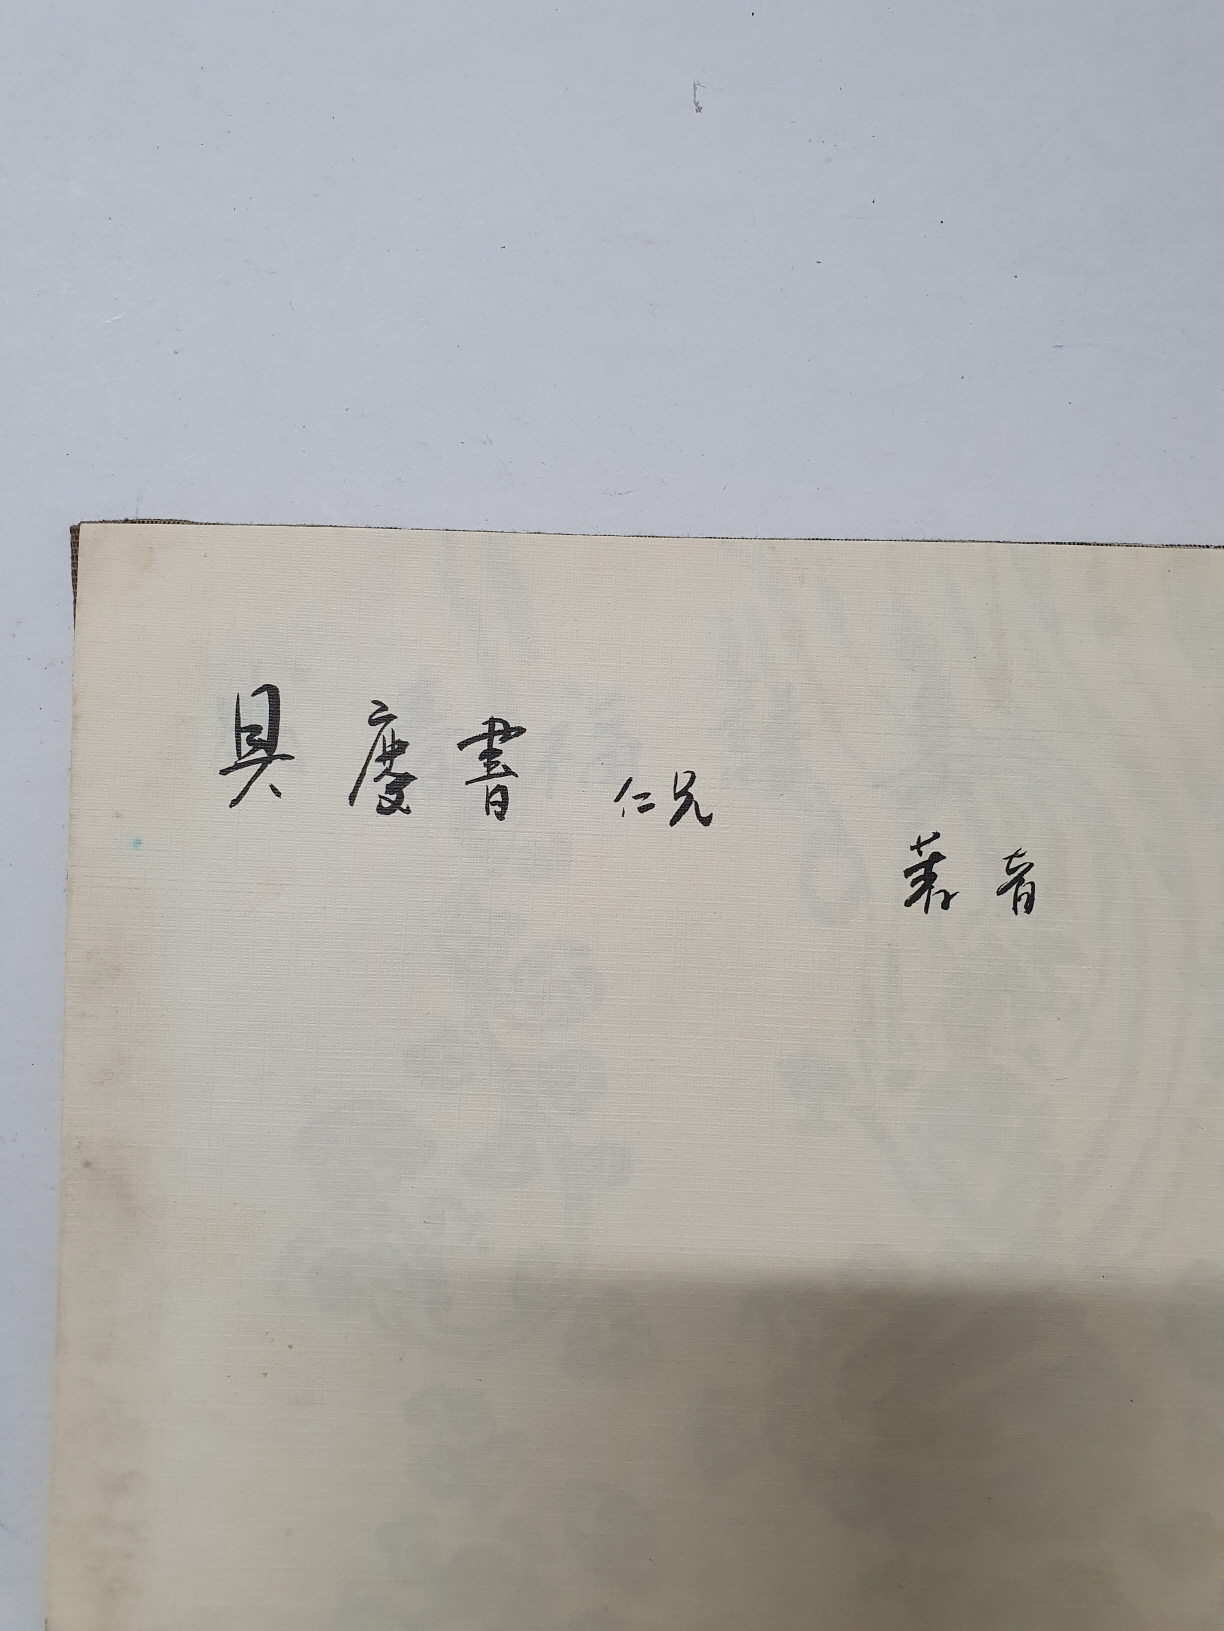 具慶書 仁兄
著者